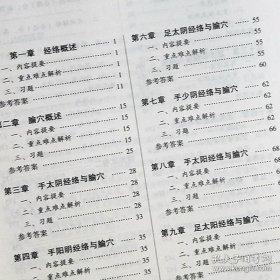 第一章 经络概述 1
一、内容提要 1
二、重点难点解析
三、习题
参考答案 11
第二章 腧穴概述 15
一、内容提要 15
二、重点难点解析 15
三、习题 25
参考答案
第三章 手太阴经络与腧穴 28
一、内容提要 28
二、重点难点解析 28
三、习题 33
参考答案 35
第四章 手阳明经络与腧穴
第六章 足太阴经络与腧穴 55
一、内容提要 55
二、重点难点解析 55
三、习题 60
参考答案
第七章 手少阴经络与腧穴 62
一、内容提要 62
二、重点难点解析 62
三、习题 66
参考答案 67
第八章 手太阳经络与腧穴 68
一、内容提要
二、重点难点解析
三、习题
参考答案
第九章 足太阳经络与腧穴
一、内容提要